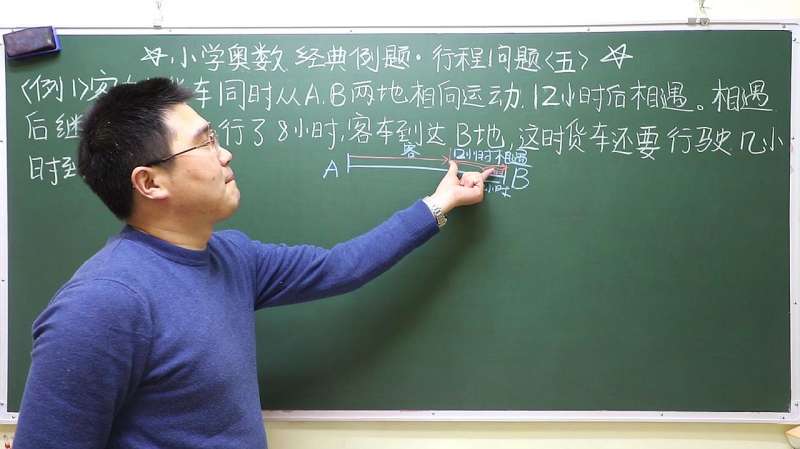 ☆ 小学奥数 经典例题·行程问题<五> ☆
<例1>客 货车同时从A.B两地相向运动.12小时后相遇。相遇
后继 行了8小时,客车到达B地,这时货车还要行驶几小
时到
客 12小时相遇
A B
小时